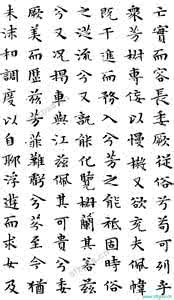 亡實而容長委厥從俗兮苟可列乎
眾芳椒專佞以慢慆樧又欲充夫佩幃
既干進而務入兮芳之能祗固時俗
之從流兮又孰能化覽椒蘭其若茲
兮又況揭車與江離茲佩其可貴兮委
厥美而歷茲芳菲難虧兮芬至今猶
未沫和調度以自聊浮遊而求女及